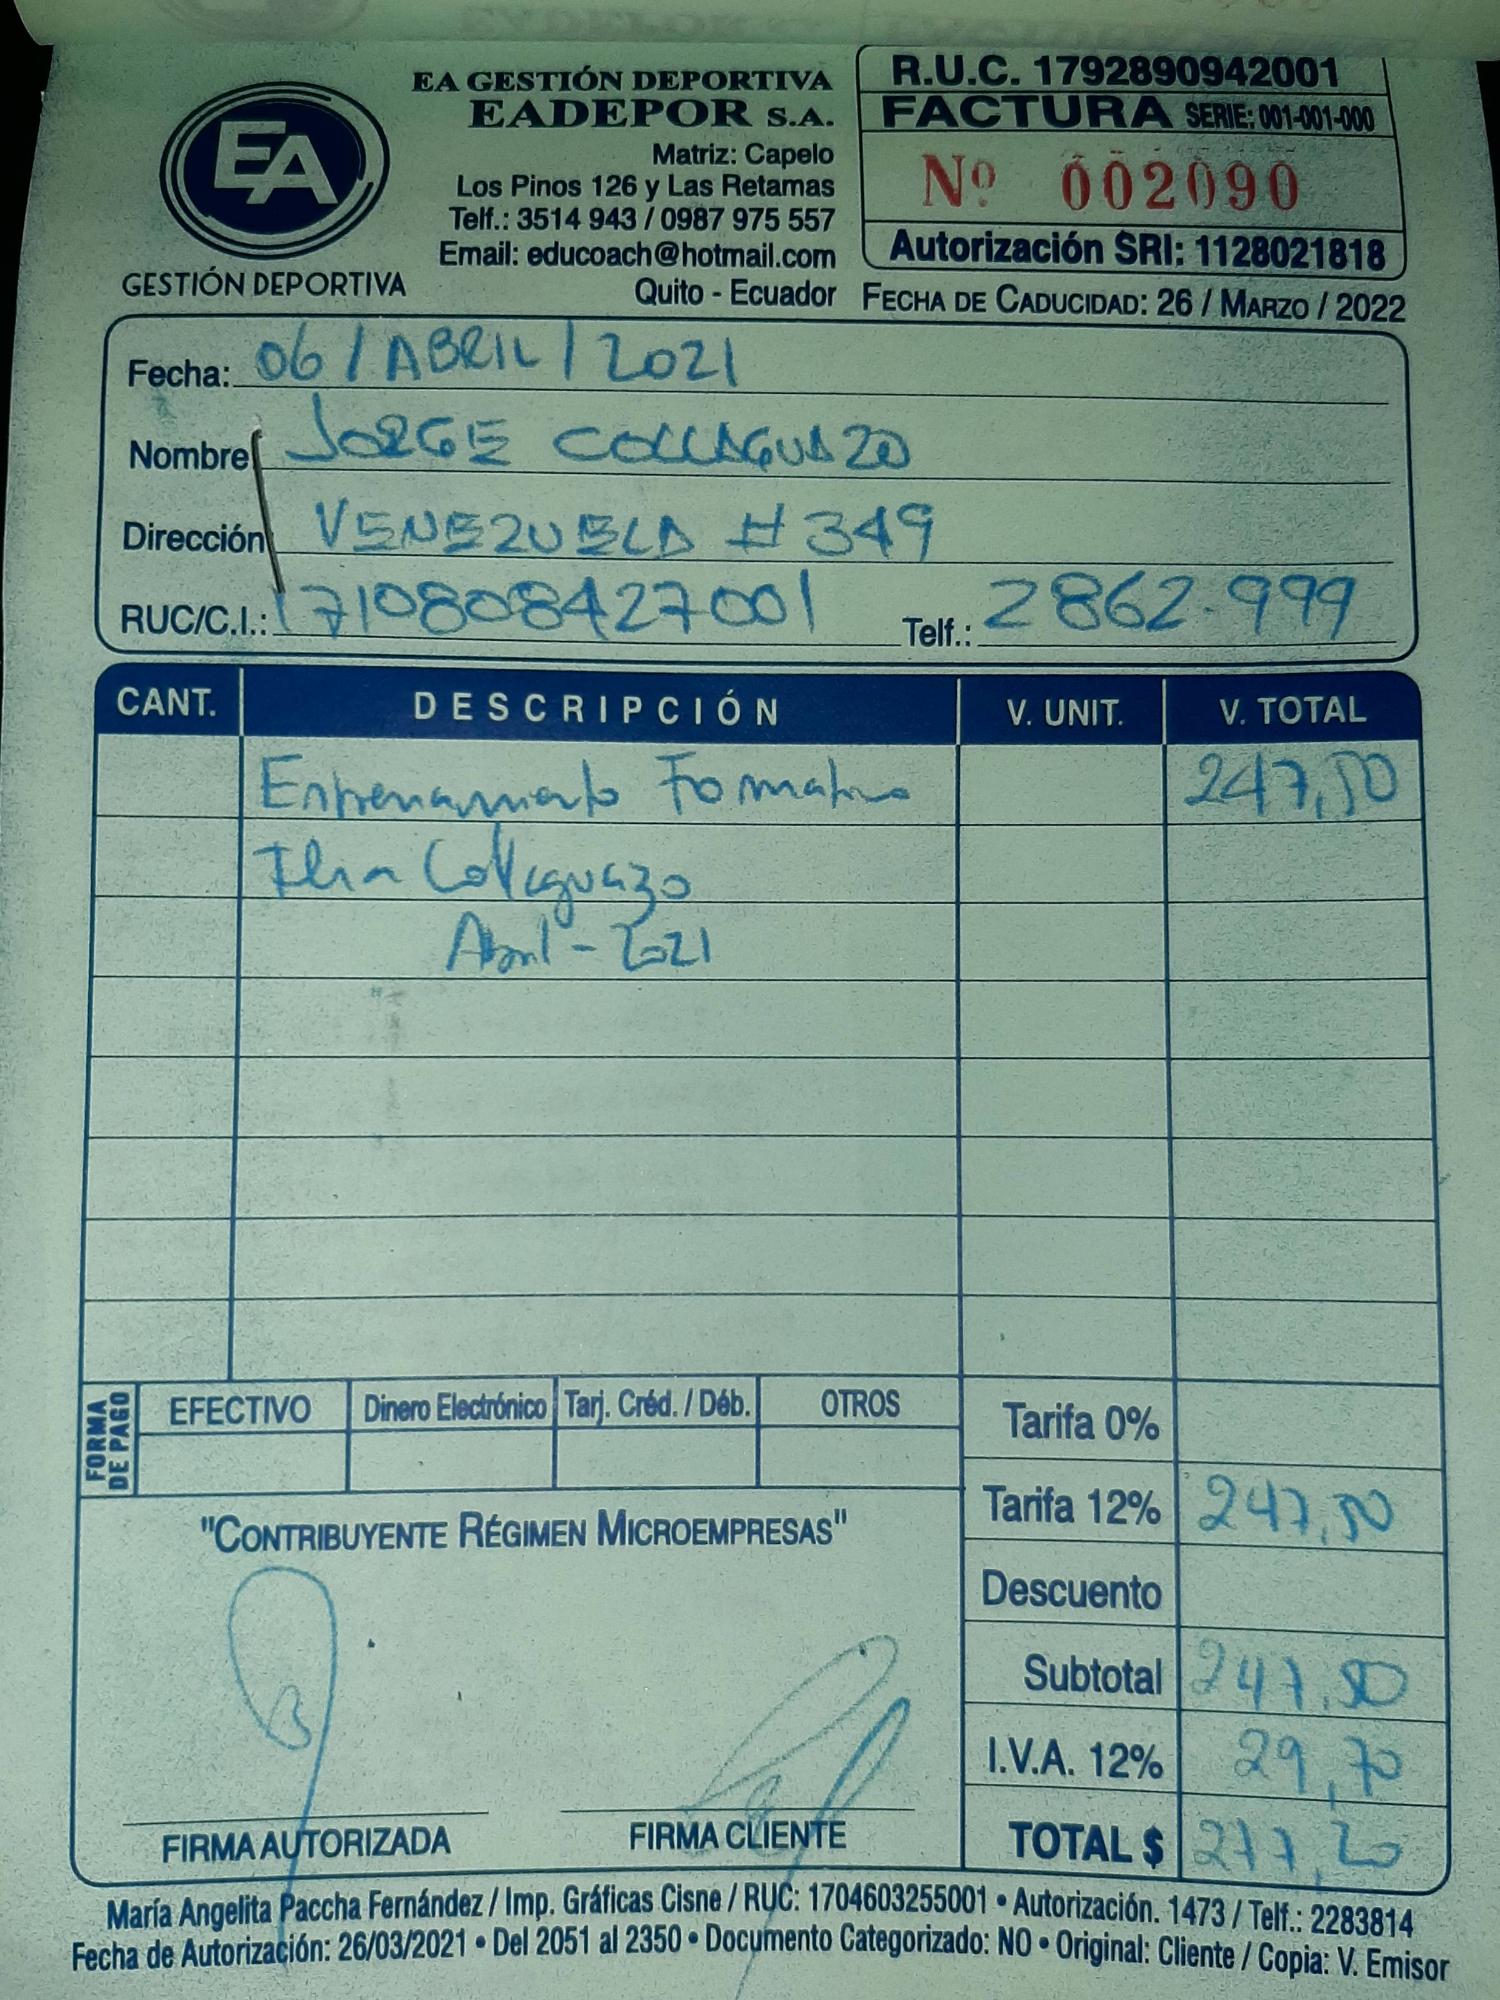 EA
GESTIÓN DEPORTIVA
EA GESTIÓN DEPORTIVA
EADEPOR S.A.
Matriz: Capelo
Los Pinos 126 y Las Retamas
Telf.: 3514 943 / 0987 975 557
Email: educoach@hotmail.com
Quito - Ecuador
R.U.C. 1792890942001
FACTURA SERIE: 001-001-000
Nº 002090
Autorización SRI: 1128021818
FECHA DE CADUCIDAD: 26 / MARZO / 2022
Fecha: 06 / ABRIL / 2021
Nombre JORGE COLLAGUAZO
Dirección VENEZUELA # 349
RUC/C.I.: 1710808427001 Telf.: 2862-999
CANT. DESCRIPCIÓN V. UNIT. V. TOTAL
Entrenamiento Formativo 247,50
Collaguazo
Abril - 2021
FORMA DE PAGO EFECTIVO Dinero Electrónico Tarj. Créd. / Déb. OTROS
Tarifa 0%
Tarifa 12% 247,50
Descuento
Subtotal 247,50
I.V.A. 12% 29,70
TOTAL $ 277,20
"CONTRIBUYENTE RÉGIMEN MICROEMPRESAS"
FIRMA AUTORIZADA FIRMA CLIENTE
María Angelita Paccha Fernández / Imp. Gráficas Cisne / RUC: 1704603255001 • Autorización. 1473 / Telf.: 2283814
Fecha de Autorización: 26/03/2021 • Del 2051 al 2350 • Documento Categorizado: NO • Original: Cliente / Copia: V. Emisor